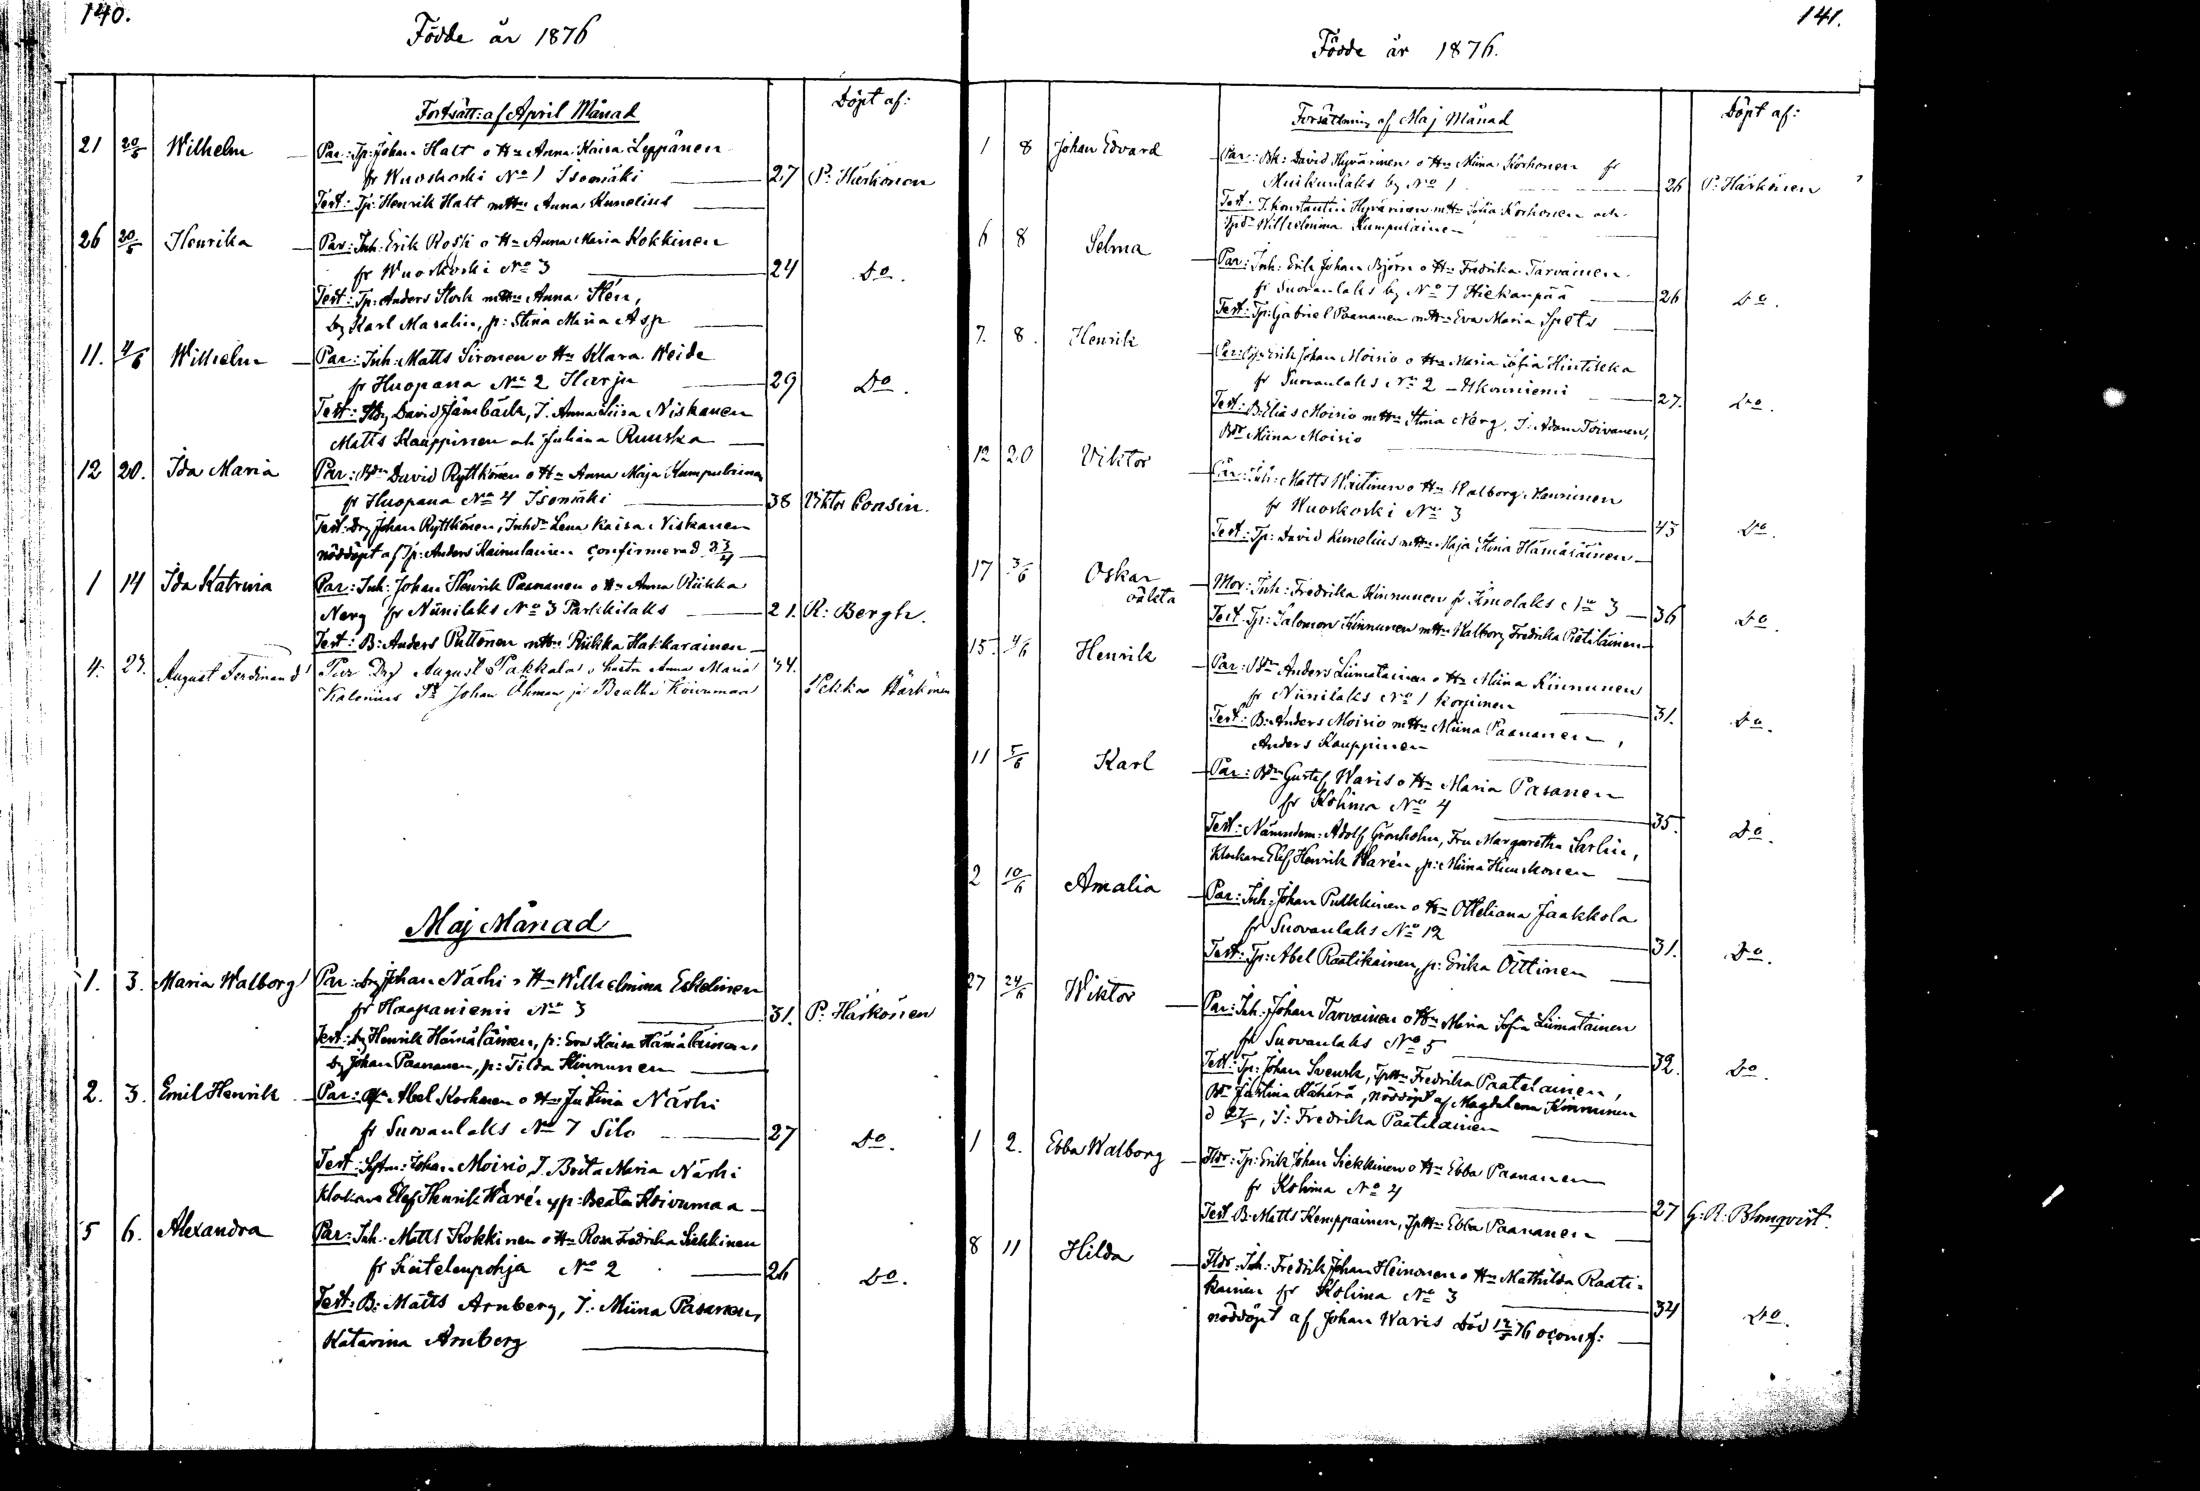 140.
Födde år 1876
Fortsätt: af April Månad
Döpt af:
21 20/5 Wilhelm Par: Tp: Johan Halt o H:u Anna Kaisa Leppänen
fr Wuoskoski No 1 Isomäki 27 P: Härkönen
Test: Tp: Henrik Halt m H:u Anna Kunelius
26 20/5 Henrika Par: Inh: Erik Koski o H:u Anna Maria Kokkinen
fr Wuoskoski No 3 24 Do.
Test: Tp: Anders Stork m H:u Anna Stén,
Dg Karl Masalin, p: Stina Maria Asp
11. 4/6 Wilhelm Par: Inh: Matts Sironen o H:u Klara Weide
fr Huopana No 2 Harju 29 Do.
Test: Dg David Jämbäck, I. Anna Liisa Niskanen
Matts Kauppinen och Juliana Ruuska
12 20. Ida Maria Par: Bdn David Rytkönen o H:u Anna Maja Kumpulainen
fr Huopana No 4 Isomäki 38 Viktor Consin.
Test: Dg Johan Rytkönen, Inhdr Lena Kaisa Niskanen
nöddöpt af Tp: Anders Kainulainen confirmerad
1 14 Ida Katrina Par: Inh: Johan Henrik Paananen o H:u Anna Riikka
Nerg fr Niinilaks No 3 Partikilaks 21. R: Bergh.
Test: B: Anders Puttonen m H:u Riikka Hakkarainen
4. 23. August Ferdinand Par Drg August Pakkala o hustru Anna Maria 34.
Kalenius Johan Öhman ja Beatha Koivumaa Pekka Härkönen
Maj Månad
1. 3. Maria Walborg Par: Dg Johan Närhi o H:u Wilhelmina Eskelinen
fr Haapaniemi No 3 31. P: Härkönen
Test: Dg Henrik Hämäläinen, p: Eva Kaisa Hämäläinen,
Dg Johan Paananen, p: Tilda Kinnunen
2. 3. Emil Henrik Par: Abel Korhonen o H:u Justina Närhi
fr Suovanlaks No 7 Silo 27 Do.
Test: Johan Moisio, I. Brita Maria Närhi
Klockare Elef Henrik Warén, p: Beata Koivumaa
5 6. Alexandra Par: Inh: Matts Kokkinen o H:u Rosa Fredrika Siekkinen
fr Keitelenpohja No 2 26 Do.
Test: B: Matts Arnberg, I: Miina Pasanen,
Katarina Arnberg
141.
Födde år 1876.
Forsättning af Maj Månad
Döpt af:
1 8 Johan Edvard Par: Bk: David Hyvärinen o H:u Miina Korhonen fr
Muikunlaks by No 1 26 P: Härkönen
Test: I. Konstantin Hyvärinen m H:u Sofia Korhonen och
Wilhelmina Kumpulainen
6 8 Selma Par: Inh: Erik Johan Björn o H:u Fredrika Tarvainen
fr Suovanlaks by No 7 Hiekanpää 26 Do.
Test: Tp: Gabriel Paananen m H:u Eva Maria Spets
7. 8. Henrik Par: Erik Johan Moisio o H:u Maria Sofia Hintikka
fr Suovanlaks No 2 Ukonniemi 27. Do.
Test: B: Elias Moisio m H:u Stina Nerg, I: Adam Toivanen,
Bdr Miina Moisio
12 20 Viktor Par: Inh: Matts Wiitinen o H:u Walborg Manninen
fr Wuoskoski No 3 43 Do.
Test: Tp: David Kunelius m H:u Maja Stina Hämäläinen
17 3/6 Oskar
oäkta Mor: Inh: Fredrika Kinnunen fr Kimolaks No 3 36 Do.
Test Tp: Salomon Kinnunen m H:u Walborg Fredrika Piätiläinen
15. 4/6 Henrik Par: Bdn Anders Liimatainen o H:u Miina Kinnunen
fr Niinilaks No 1 Korpinen 31. Do.
Test: B: Anders Moisio m H:u Miina Paananen,
Anders Kauppinen
11 5/6 Karl Par: Bdn Gustaf Waris o H:u Maria Pasanen
fr Kolima No 4 35. Do.
Test: Nämndem: Adolf Grönholm, Fru Margaretha Sarlin,
Klockare Elef Henrik Warén, p: Miina Huuskonen
2 10/6 Amalia Par: Inh: Johan Pulkkinen o H:u Otteliana Jaakkola
fr Suovanlaks No 12 31. Do.
Test: Tp: Abel Raatikainen, p: Erika Oittinen
27 24/6 Wiktor Par: Inh: Johan Tarvainen o H:u Maria Sofia Liimatainen
fr Suovanlaks No 5 32. Do.
Test: Tp: Johan Svensk, Tp H:u Fredrika Paatelainen,
Bdr Justina Kähärä, nöddöpt af Magdalena Kinnunen
d 27/5, I: Fredrika Paatelainen
1 2. Ebba Walborg Fldr: Tp: Erik Johan Siekkinen o H:u Ebba Paananen
fr Kolima No 4 27 G: R: Blomqvist.
Test B: Matts Kemppainen, Tp H:u Ebba Paananen
8 11 Hilda Fldr: Inh: Fredrik Johan Heinonen o H:u Mathilda Raati-
kainen fr Kolima No 3 34 Do.
nöddöpt af Johan Waris död 12/5 76 oconf: